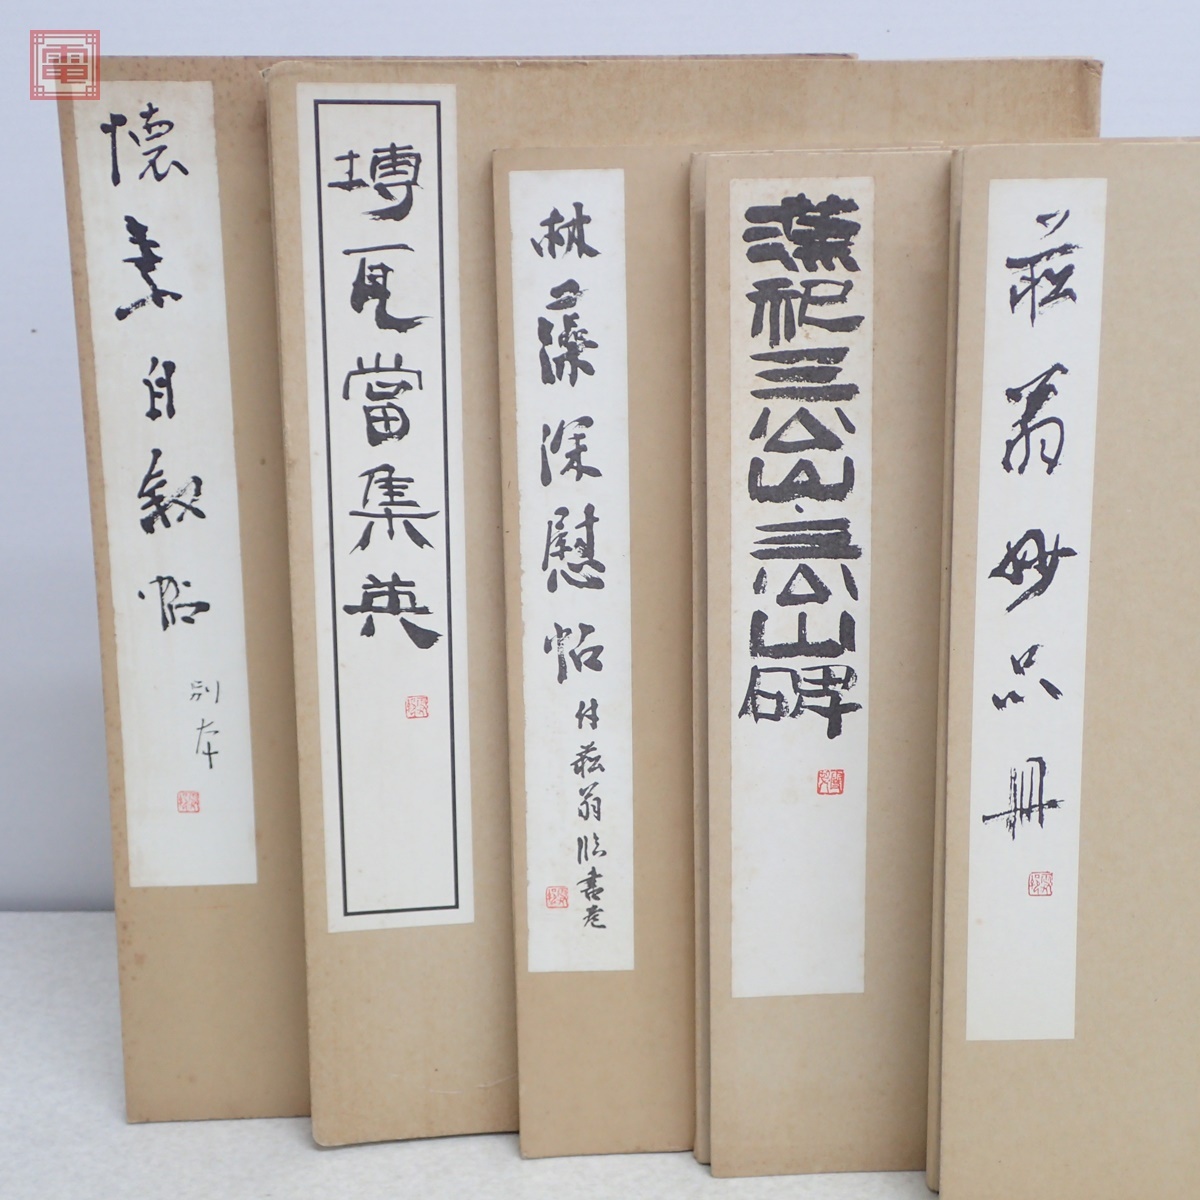 電
懐素自叙帖
別本
塼瓦當集英
林藻深慰帖
付菘翁臨書巻
漢祀三公山三公山碑
菘翁妙品冊